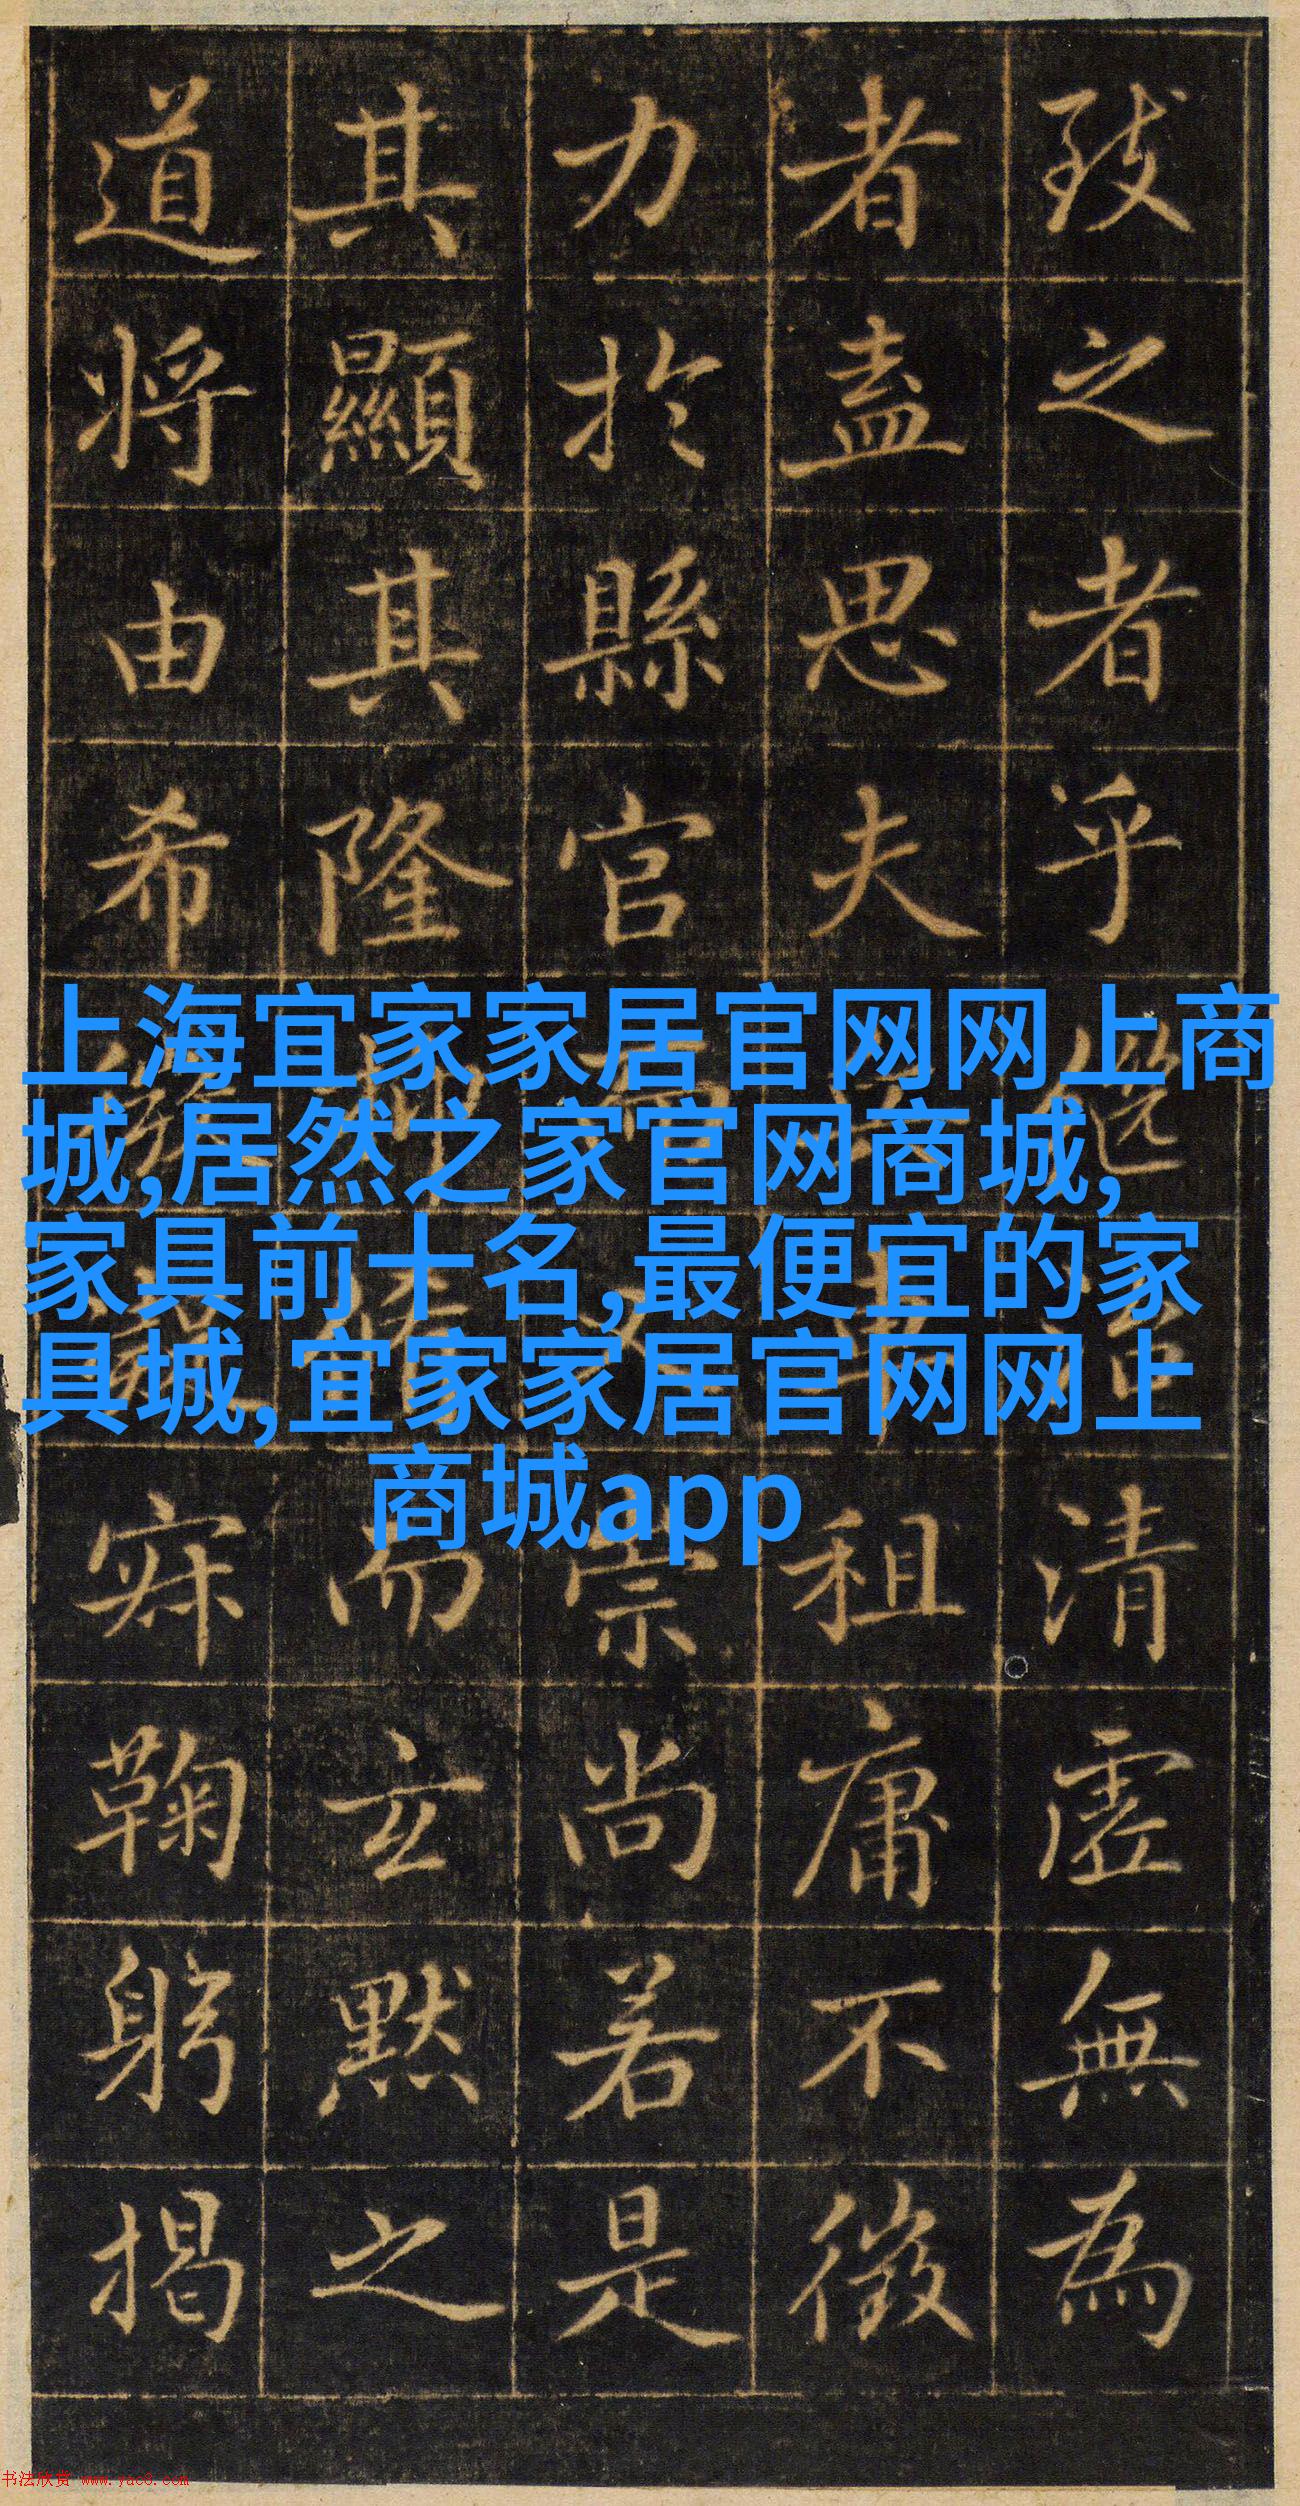 致之者乎清虛無為
者盡思夫租庸不徵
力於縣官而又崇尚若是
其顯其隆而玄默之
道將由希鞠躬揭
上海宜家家居官网网上商
城,居然之家官网商城,
家具前十名,最便宜的家
具城,宜家家居官网网上
商城app
书法欣赏 www.yac8.com